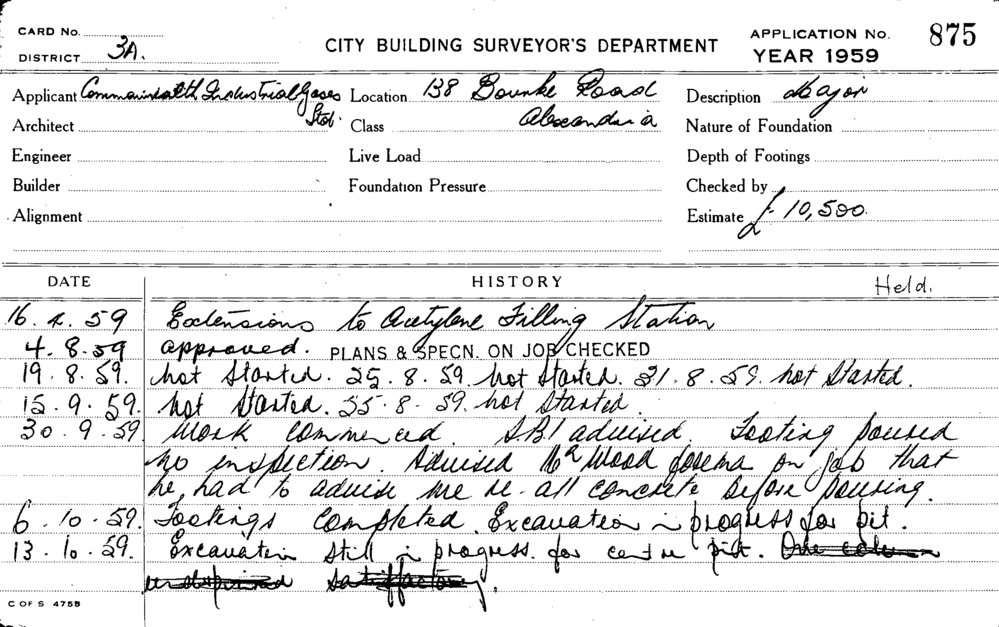 CARD No.
DISTRICT 3A.
CITY BUILDING SURVEYOR'S DEPARTMENT
APPLICATION No. 875
YEAR 1959
Applicant Commonwealth Industrial Gases Ltd. Location 138 Bourke Road Description Major
Architect Class Alexandria Nature of Foundation
Engineer Live Load Depth of Footings
Builder Foundation Pressure Checked by
Alignment Estimate £ 10,500.
DATE HISTORY Held.
16. 4. 59 Extensions to Acetylene Filling Station
4. 8. 59 approved. PLANS & SPECN. ON JOB CHECKED
19. 8. 59. not started. 25. 8. 59 not started. 31. 8. 59. not started.
15. 9. 59. not started. 8. 59. not started.
30. 9. 59 Work commenced. advised. Footing poured
no inspection. Advised Mr Wood on job that
he had to advise me re. all concrete before pouring.
6. 10. 59. Footings completed. Excavation in progress for pit.
13. 10. 59. Excavation still in progress for centre pit. One column
underpinned satisfactory.
C OF S 4755